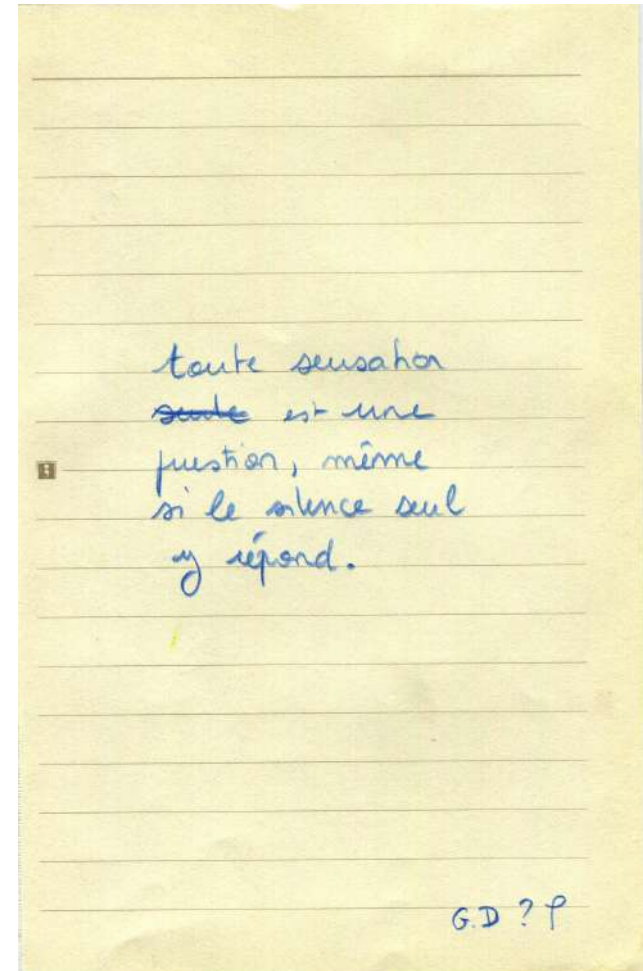 toute sensation
seule est une
question, même
si le silence seul
y répond.
G.D ?